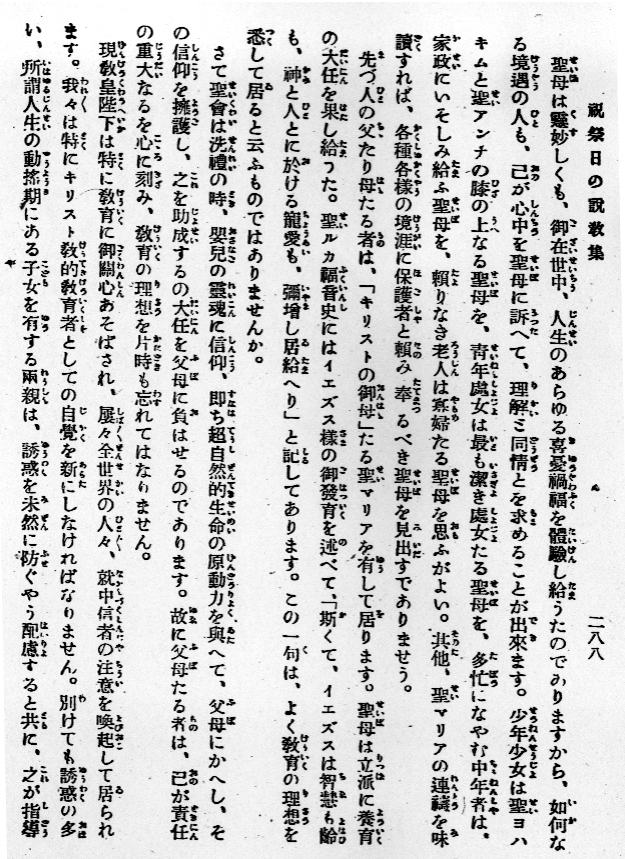 祝祭日の説教集
二八八
聖母は靈妙しくも、御在世中、人生のあらゆる喜憂禍福を體驗し給うたのでありますから、如何な
る境遇の人も、己が心中を聖母に訴へて、理解ミ同情とを求めることが出來ます。少年少女は聖ヨハ
キムと聖アンナの膝の上なる聖母を、靑年處女は最も潔き處女たる聖母を、多忙になやむ中年者は、
家政にいそしみ給ふ聖母を、賴りなき老人は寡婦たる聖母を思ふがよい。其他、聖マリアの連禱を味
讀すれば、各種各樣の境涯に保護者と賴み奉るべき聖母を見出すでありませう。
先づ人の父たり母たる者は、「キリストの御母」たる聖マリアを有して居ります。聖母は立派に養育
の大任を果し給うた。聖ルカ福音史にはイエズス様の御發育を述べて、「斯くて、イエズスは智慧も齡
も、神と人とに於ける寵愛も、彌增し居給へり」と記してあります。この一句は、よく敎育の理想を
悉して居ると云ふものではありませんか。
さて聖會は洗禮の時、嬰兒の靈魂に信仰、卽ち超自然的生命の原動力を與へて、父母にかへし、そ
の信仰を擁護し、之を助成するの大任を父母に負はせるのであります。故に父母たる者は、己が責任
の重大なるを心に刻み、敎育の理想を片時も忘れてはなりません。
現敎皇陛下は特に敎育に御關心あそばされ、屢々全世界の人々、就中信者の注意を喚起して居られ
ます。我々は特にキリスト敎的敎育者としての自覺を新にしなければなりません。別けても誘惑の多
い、所謂人生の動搖期にある子女を有する兩親は、誘惑を未然に防ぐやう配慮すると共に、之が指導